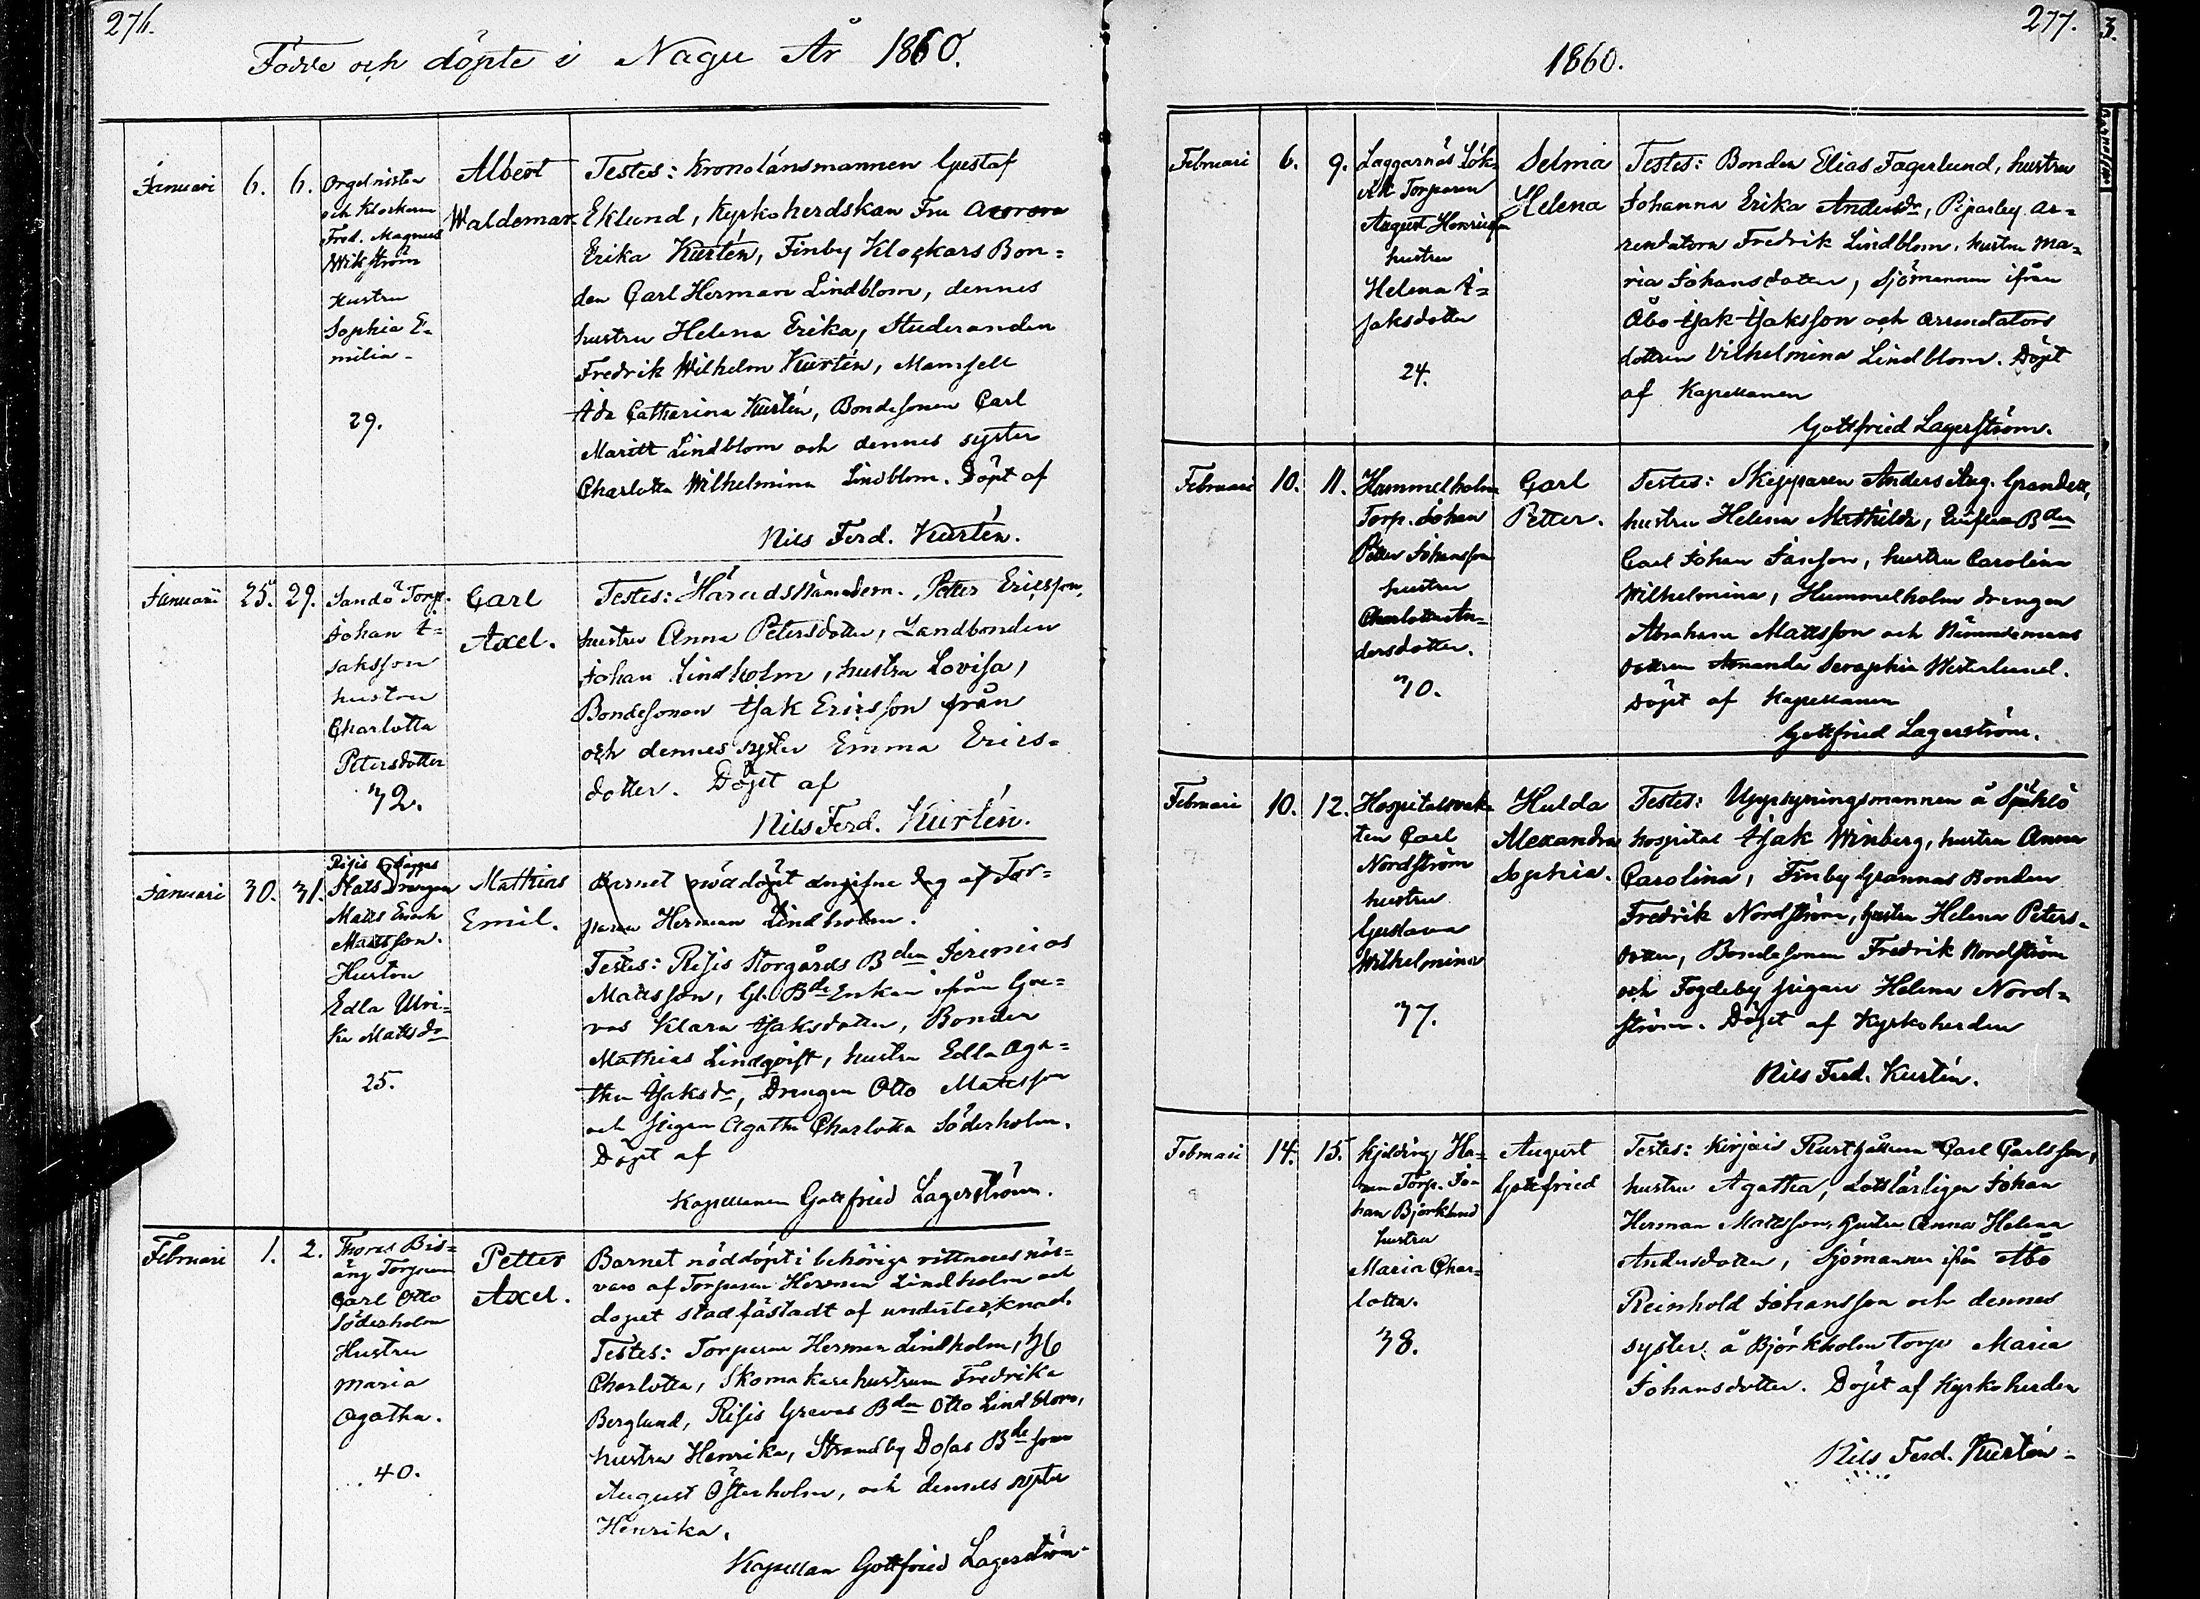 276.
Födde och döpte i Nagu År 1860.
Januari 6. 6.
Orgelnisten
och Klockaren
Fred. Magnus
Wikström
hustru
Sophia E-
milia-
29.
Albert
Waldemar
Testes: Kronolänsmannen Gustaf
Eklund, Kyrkoherdskan Fru Aurora
Erika Kurtén, Finby Klockars Bon-
den Carl Herman Lindblom, dennes
hustru Helena Erika, Studeranden
Fredrik Wilhelm Kurtén, Mamsell
Ada Catharina Kurtén, Bondesonen Carl
Maritt Lindblom och dennes syster
Charlotta Wilhelmina Lindblom. Döpt af
Nils Ferd. Kurtén.
Januari 25. 29.
Sandö Torp.
Johan I-
saksson
hustru
Charlotta
Petersdotter
32.
Carl
Axel.
Testes: Häradsnämndem. Petter Ericsson,
hustru Anna Petersdotter, Landbonden
Johan Lindholm, hustru Lovisa,
Bondesonen Isak Ericsson från
och dennes syster Emma Erics-
dotter. Döpt af
Nils Ferd. Kurtén.
Januari 30. 31.
Risis
Drengen
Matts Enok
Mattsson.
Hustru
Edla Ulri-
ka Mattsdr
25.
Mathias
Emil.
Barnet nöddöpt angifne dag af Tor-
paren Herman Lindholm.
Testes: Risis Storgårds Bden Jeremias
Mattsson, Gl. Bde Enkan ifrån Gre-
vas Klara Isaksdotter, Bonden
Mathias Lindqvist, hustru Edla Aga-
tha Isaksdr, Drengen Otto Mattsson
och pigan Agatha Charlotta Söderholm.
Döpt af
Kapellanen Gottfried Lagerström.
Februari 1. 2.
Bis-
äng Torparen
Carl Otto
Söderholm
Hustru
Maria
Agatha.
40.
Petter
Axel.
Barnet nöddöpt i behöriga vittnens när-
varo af Torparen Herman Lindholm och
dopet stadfästadt af undertecknad.
Testes: Torparen Herman Lindholm, H
Charlotta, Skomakarehustrun Fredrika
Berglund, Risis Grevas Bden Otto Lindblom,
hustru Henrika, Strandby Dosas Bdeson
August Österholm, och dennes syster
Henrika.
Kapellan Gottfried Lagerström-
277.
1860.
Februari 6. 9.
Laggarnäs Lök-
vik Torparen
August Henriksson
hustru
Helena I-
saksdotter
24.
Selma
Helena
Testes: Bonden Elias Fagerlund, hustru
Johanna Erika Andersdr, Piparby Ar-
rendatorn Fredrik Lindblom, hustru Ma-
ria Johansdotter, Sjömannen ifrån
Åbo Isak Isaksson och Arrendators
dottren Vilhelmina Lindblom. Döpt
af Kapellanen
Gottfried Lagerström.
Februari 10. 11.
Hummelholm
Torp. Johan
Petter Johansson
hustru
Charlotta An-
dersdotter.
30.
Carl
Petter.
Testes: Skepparen Anders Aug. Grandell,
hustru Helena Mathilda, Bden
Carl Johan Jansson, hustru Carolina
Wilhelmina, Hummelholm drengen
Abraham Mattsson och Nämndemans
dottren Amanda Seraphia Westerlund.
Döpt af Kapellanen
Gottfried Lagerström.
Februari 10. 12.
Hospitalsvak-
ten Carl
Nordström
hustru
Gustava
Wilhelmina
37.
Hulda
Alexandra
Sophia.
Testes: Uppsyningsmannen å Själö
hospital Isak Winberg, hustru Anna
Carolina, Finby Grannas Bonden
Fredrik Nordström, hustru Helena Peters-
dotter, Bondesonen Fredrik Nordström
och Fogdeby pigan Helena Nord-
ström. Döpt af Kyrkoherden
Nils Ferd. Kurtén.
Februari 14. 15.
Kjelding Ha-
Torp. Jo-
han Björklund
hustru
Maria Char-
lotta.
38.
August
Gottfried
Testes: Kirjais Carl Carlsson,
hustru Agatha, Lottslärlingen Johan
Herman Mattsson, hustru Anna Helena
Andersdotter, Sjömannen ifrån Åbo
Reinhold Johansson och dennes
syster å Björkholm torp Maria
Johansdotter. Döpt af Kyrkoherden
Nils Ferd. Kurtén-